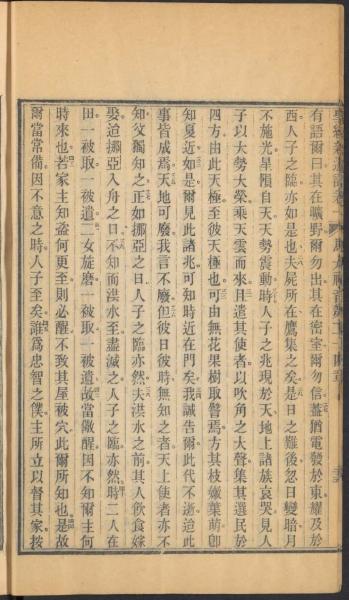 有語爾曰其在曠野爾勿出其在密室爾勿信蓋猶電發於東耀及於
西人子之臨亦如是也夫屍所在鷹集之矣是日之難後忽日變暗月
不施光星隕自天天勢震動時人子之兆現於天地上諸族哀哭見人
子以大勢大榮乘天雲而來且遣其使者以吹角之大聲集其選民於
四方由此天極至彼天極也可由無花果樹取譬焉方其枝嫩葉萌卽
知夏近如是爾見此諸兆可知時近在門矣我誠告爾此代不逝迨此
事皆成焉天地可廢我言不廢但彼日彼時無知之者天上使者亦不
知父獨知之正如挪亞之日人子之臨亦然夫洪水之前其人飲食嫁
娶迨挪亞入舟之日不知而洪水至盡滅之人子之臨亦然時二人在
田一被取一被遺二女旋磨一被取一被遺故當儆醒因不知爾主何
時來也若家主知盜何更至則必醒不致其屋被穴此爾所知也是故
爾當常備因不意之時人子至矣誰爲忠智之僕主所立以督其家按